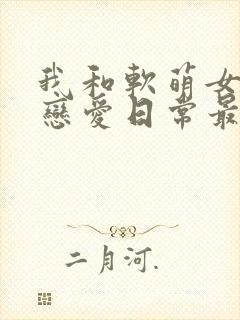 我和軟萌女
戀愛日常最
二月河.